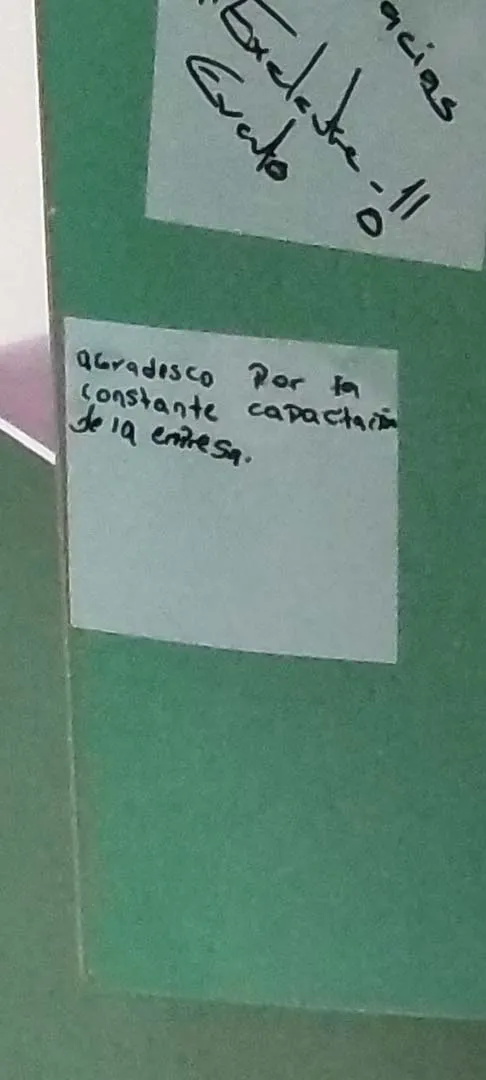 acias
Excelente
Evento
agradesco Por la
constante capactación
de la empresa.